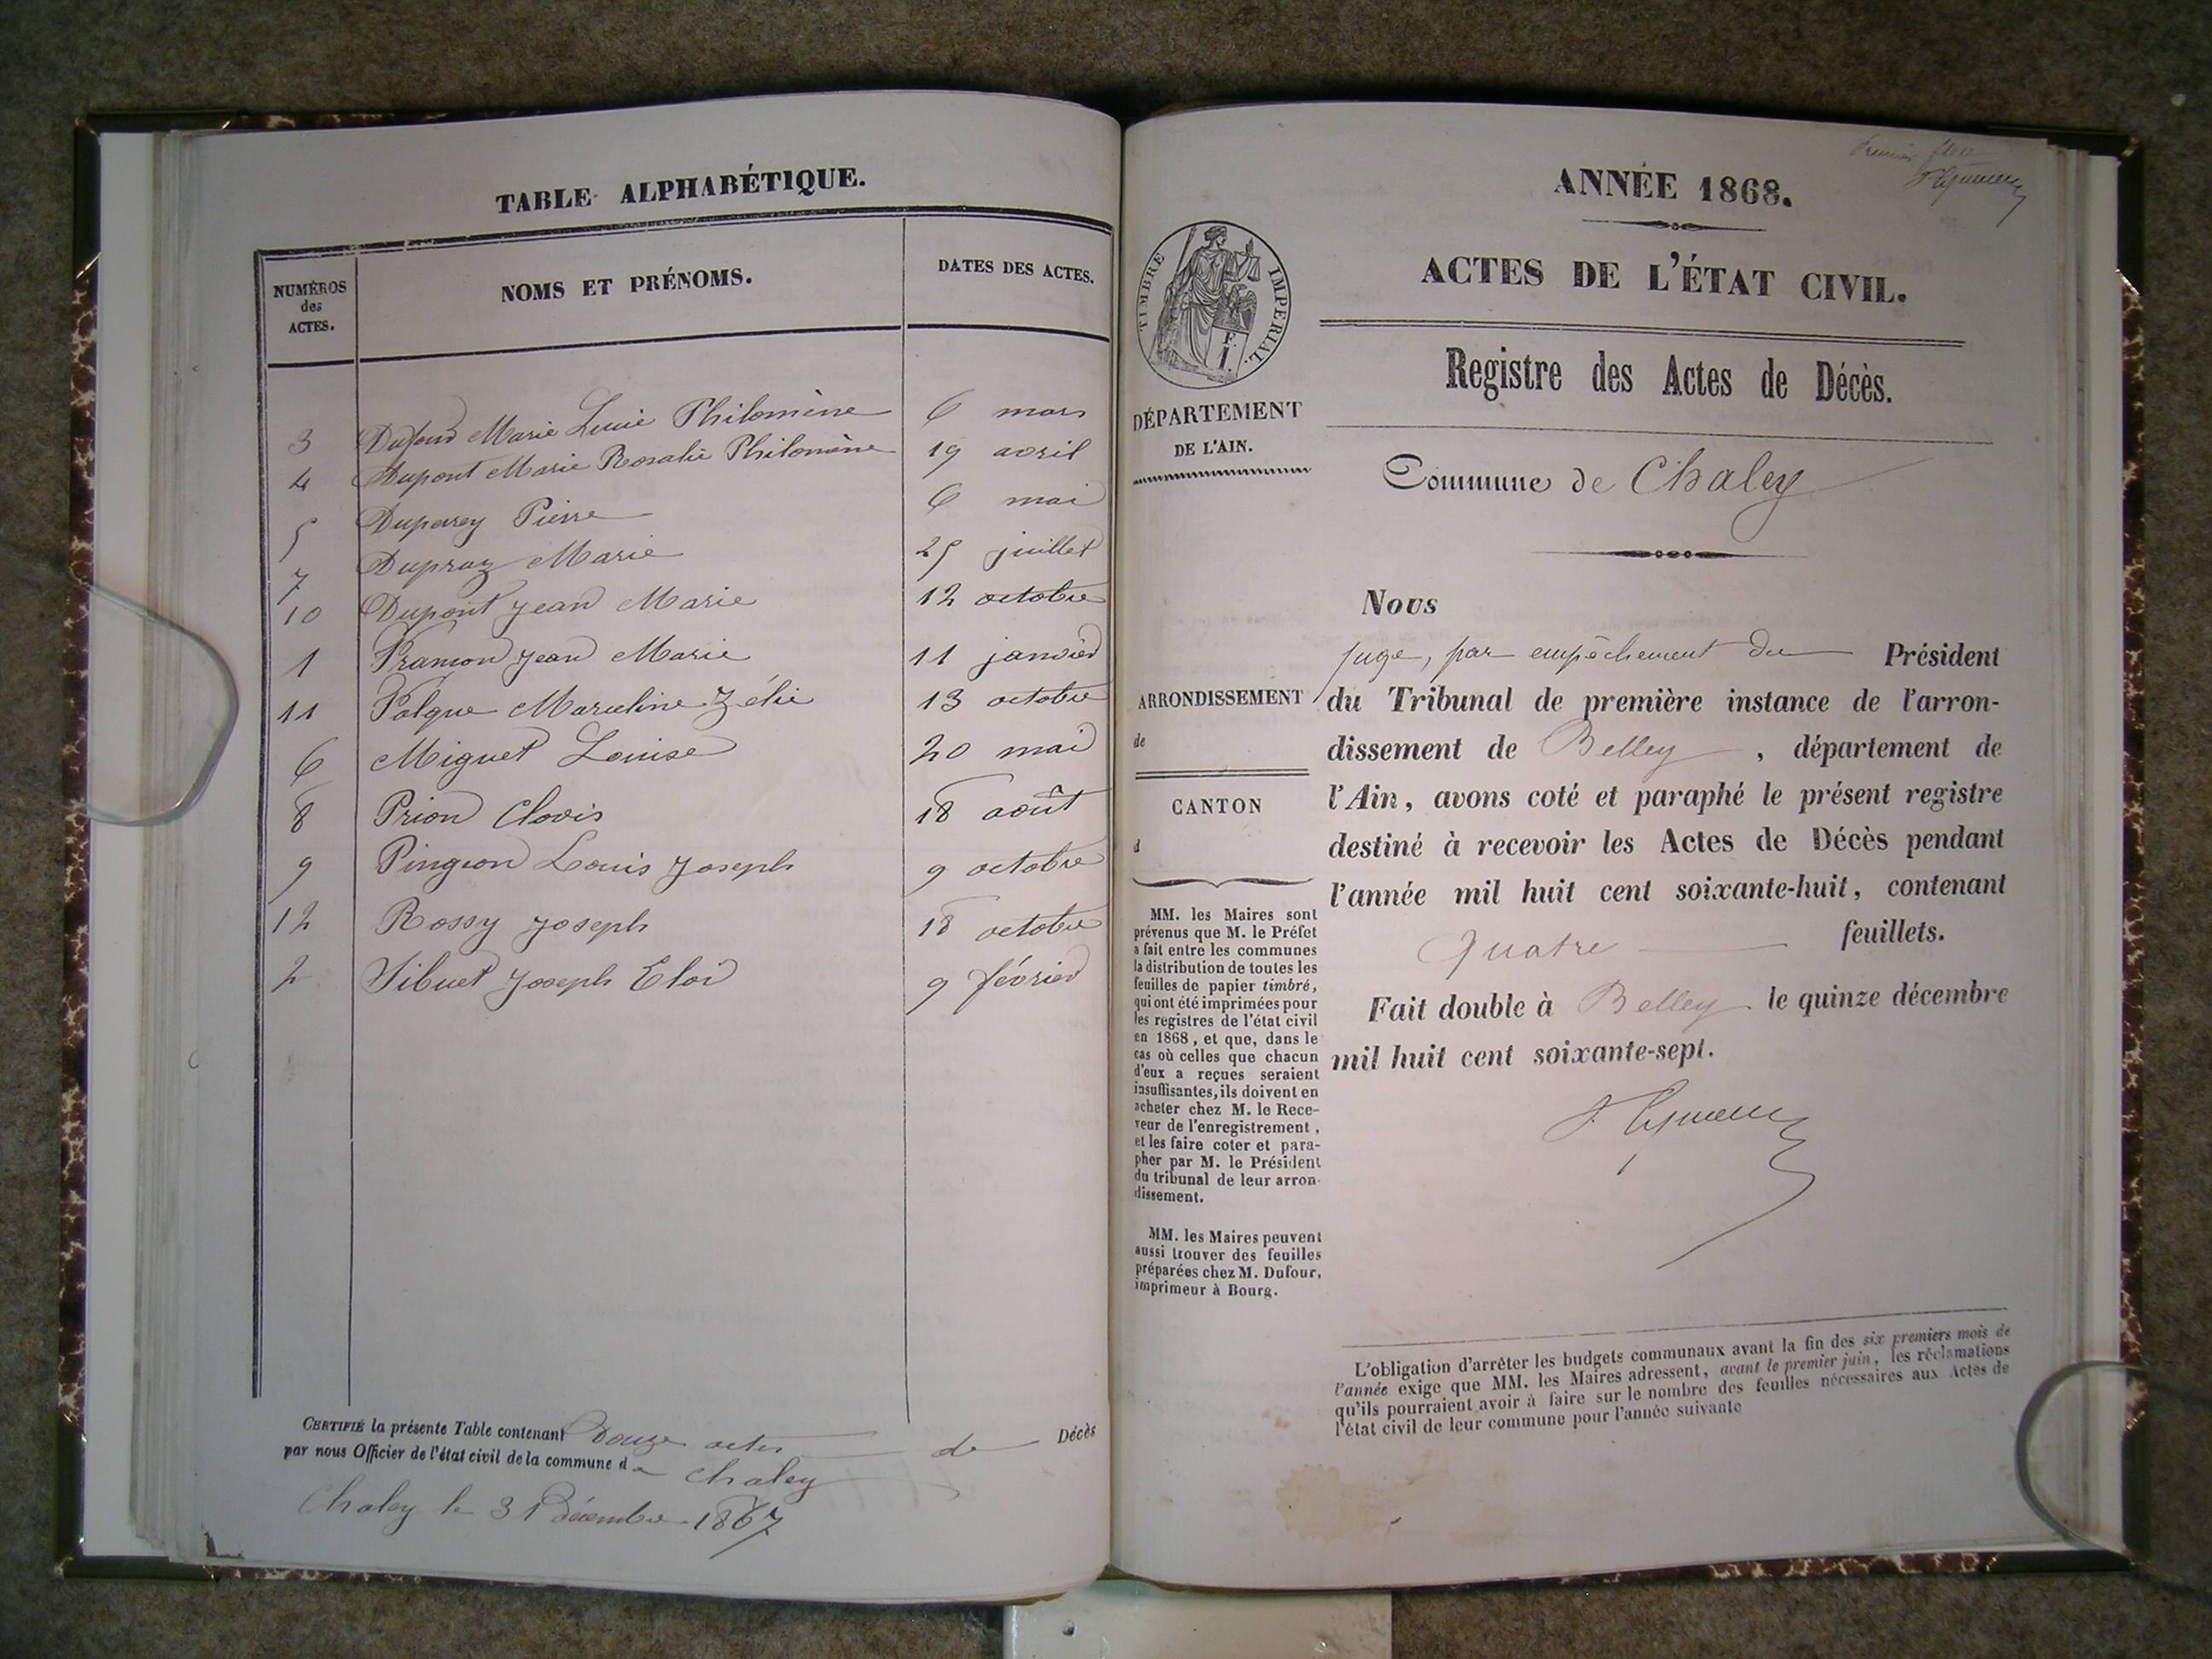 TABLE ALPHABÉTIQUE.
NUMÉROS des ACTES. NOMS ET PRÉNOMS. DATES DES ACTES.
3 Marie Lucie Philomène 6 mars
4 Dupont Marie Rosalie Philomène 19 avril
5 Duparey Pierre 6 mai
7 Dupraz Marie 25 juillet
10 Dupont Jean Marie 12 octobre
1 Framon Jean Marie 11 janvier
11 Falque Marceline Zélie 13 octobre
6 Miguet Louise 20 mai
8 Prion Clovis 18 août
9 Pingeon Louis Joseph 9 octobre
12 Rossy Joseph 18 octobre
2 Sibuet Joseph Eloi 9 février
CERTIFIÉ la présente Table contenant Douze actes de Décès
par nous Officier de l'état civil de la commune de Chaley
Chaley le 31 Décembre 1867
Premier
ANNÉE 1868.
ACTES DE L'ÉTAT CIVIL.
Registre des Actes de Décès.
TIMBRE IMPÉRIAL.
DÉPARTEMENT
DE L'AIN.
Commune de Chaley
ARRONDISSEMENT
de
CANTON
d
MM. les Maires sont
prévenus que M. le Préfet
a fait entre les communes
la distribution de toutes les
feuilles de papier timbré,
qui ont été imprimées pour
les registres de l'état civil
en 1868, et que, dans le
cas où celles que chacun
d'eux a reçues seraient
insuffisantes, ils doivent en
acheter chez M. le Rece-
veur de l'enregistrement,
et les faire coter et para-
pher par M. le Président
du tribunal de leur arron-
dissement.
MM. les Maires peuvent
aussi trouver des feuilles
préparées chez M. Dufour,
imprimeur à Bourg.
Nous
juge, par empêchement du Président
du Tribunal de première instance de l'arron-
dissement de Belley, département de
l'Ain, avons coté et paraphé le présent registre
destiné à recevoir les Actes de Décès pendant
l'année mil huit cent soixante-huit, contenant
quatre feuillets.
Fait double à Belley le quinze décembre
mil huit cent soixante-sept.
L'obligation d'arrêter les budgets communaux avant la fin des six premiers mois de
l'année exige que MM. les Maires adressent, avant le premier juin, les réclamations
qu'ils pourraient avoir à faire sur le nombre des feuilles nécessaires aux Actes de
l'état civil de leur commune pour l'année suivante